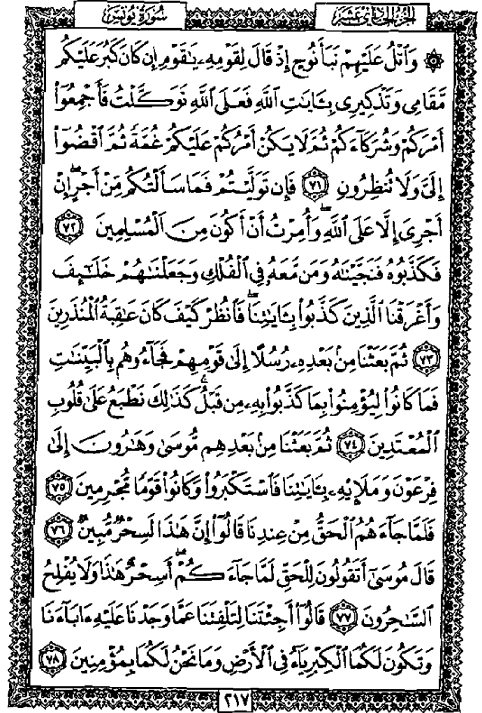 سورة يونس الجزء الحادي عشر
۞ وَٱتْلُ عَلَيْهِمْ نَبَأَ نُوحٍ إِذْ قَالَ لِقَوْمِهِۦ يَٰقَوْمِ إِن كَانَ كَبُرَ عَلَيْكُم
مَّقَامِى وَتَذْكِيرِى بِـَٔايَٰتِ ٱللَّهِ فَعَلَى ٱللَّهِ تَوَكَّلْتُ فَأَجْمِعُوٓا۟
أَمْرَكُمْ وَشُرَكَآءَكُمْ ثُمَّ لَا يَكُنْ أَمْرُكُمْ عَلَيْكُمْ غُمَّةً ثُمَّ ٱقْضُوٓا۟
إِلَىَّ وَلَا تُنظِرُونِ ٧١ فَإِن تَوَلَّيْتُمْ فَمَا سَأَلْتُكُم مِّنْ أَجْرٍ ۖ إِنْ
أَجْرِىَ إِلَّا عَلَى ٱللَّهِ ۖ وَأُمِرْتُ أَنْ أَكُونَ مِنَ ٱلْمُسْلِمِينَ ٧٢
فَكَذَّبُوهُ فَنَجَّيْنَٰهُ وَمَن مَّعَهُۥ فِى ٱلْفُلْكِ وَجَعَلْنَٰهُمْ خَلَٰٓئِفَ
وَأَغْرَقْنَا ٱلَّذِينَ كَذَّبُوا۟ بِـَٔايَٰتِنَا ۖ فَٱنظُرْ كَيْفَ كَانَ عَٰقِبَةُ ٱلْمُنذَرِينَ
٧٣ ثُمَّ بَعَثْنَا مِنۢ بَعْدِهِۦ رُسُلًا إِلَىٰ قَوْمِهِمْ فَجَآءُوهُم بِٱلْبَيِّنَٰتِ
فَمَا كَانُوا۟ لِيُؤْمِنُوا۟ بِمَا كَذَّبُوا۟ بِهِۦ مِن قَبْلُ ۚ كَذَٰلِكَ نَطْبَعُ عَلَىٰ قُلُوبِ
ٱلْمُعْتَدِينَ ٧٤ ثُمَّ بَعَثْنَا مِنۢ بَعْدِهِم مُّوسَىٰ وَهَٰرُونَ إِلَىٰ
فِرْعَوْنَ وَمَلَإِي۟هِۦ بِـَٔايَٰتِنَا فَٱسْتَكْبَرُوا۟ وَكَانُوا۟ قَوْمًا مُّجْرِمِينَ ٧٥
فَلَمَّا جَآءَهُمُ ٱلْحَقُّ مِنْ عِندِنَا قَالُوٓا۟ إِنَّ هَٰذَا لَسِحْرٌ مُّبِينٌ ٧٦
قَالَ مُوسَىٰٓ أَتَقُولُونَ لِلْحَقِّ لَمَّا جَآءَكُمْ ۖ أَسِحْرٌ هَٰذَا وَلَا يُفْلِحُ
ٱلسَّٰحِرُونَ ٧٧ قَالُوٓا۟ أَجِئْتَنَا لِتَلْفِتَنَا عَمَّا وَجَدْنَا عَلَيْهِ ءَابَآءَنَا
وَتَكُونَ لَكُمَا ٱلْكِبْرِيَآءُ فِى ٱلْأَرْضِ وَمَا نَحْنُ لَكُمَا بِمُؤْمِنِينَ ٧٨
٢١٧